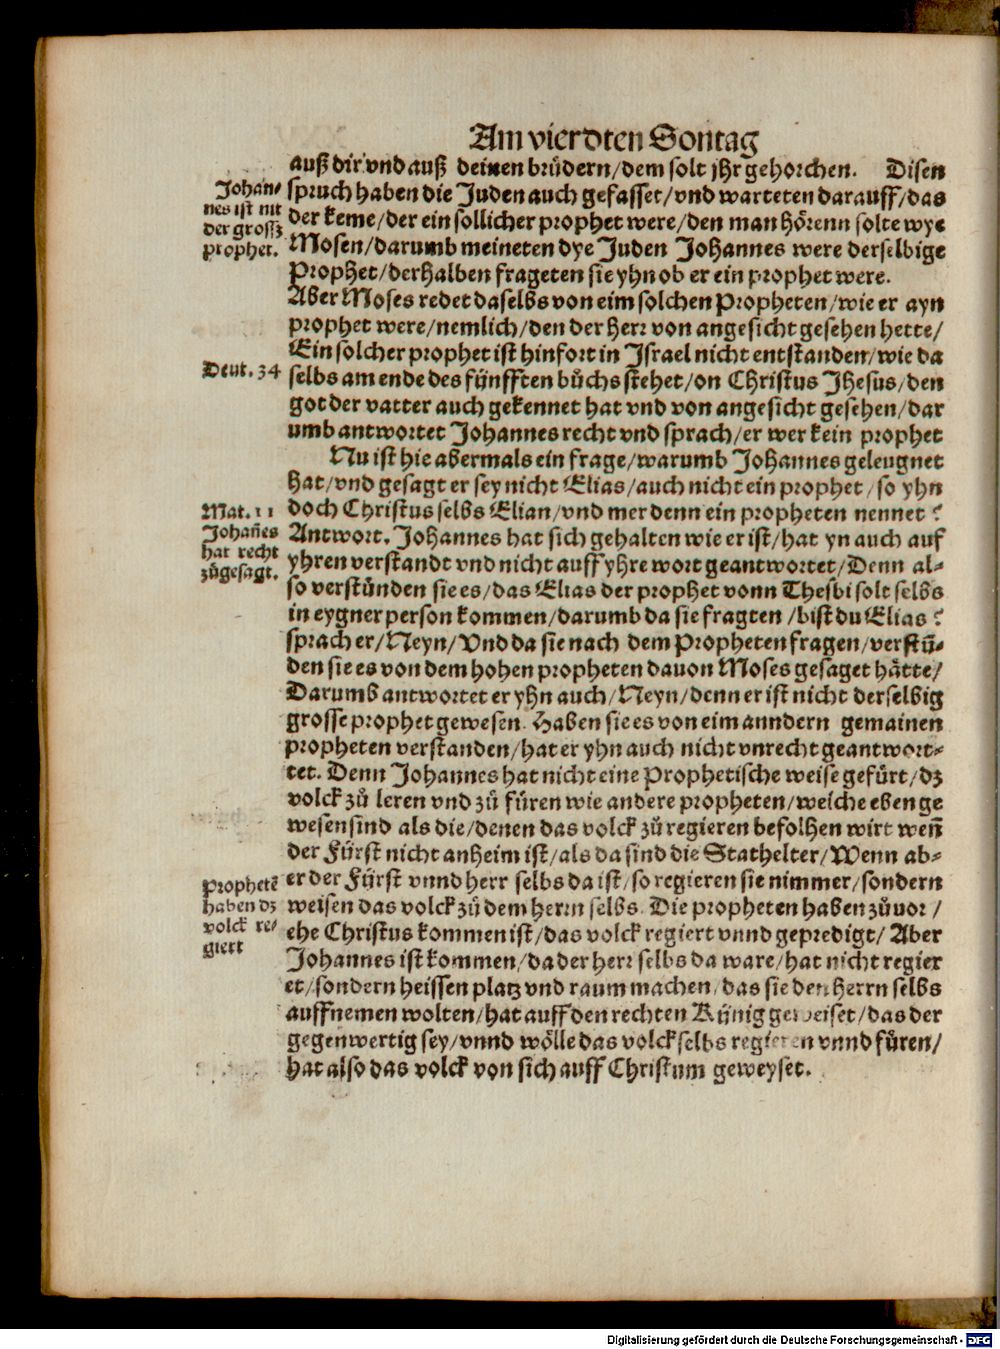 Am vierdten Sontag
auß dir vnd auß deinen brüdern/dem solt jhr gehorchen. Disen
spruch haben die Juden auch gefasset/vnd warteten darauff/das
der keme/der ein sollicher prophet were/den man hörenn solte wye
Mosen/darumb meineten dye Juden Johannes were derselbige
Prophet/derhalben frageten sie yhn ob er ein prophet were.
Johan⸗
nes ist nit
der grosß
prophet.
Aber Moses redet daselbs von eim solchen Propheten/wie er ayn
prophet were/nemlich/den der herr von angesicht gesehen hette/
Ein solcher prophet ist hinfort in Israel nicht entstanden/wie da
selbs am ende des fünfften bůchs stehet/on Christus Jhesus/den
got der vatter auch gekennet hat vnd von angesicht gesehen/dar
umb antwortet Johannes recht vnd sprach/er wer kein prophet
Deut. 34
Nu ist hie abermals ein frage/warumb Johannes geleugnet
hat/vnd gesagt er sey nicht Elias/auch nicht ein prophet/so yhn
doch Christus selbs Elian/vnd mer denn ein propheten nennet?
Antwort. Johannes hat sich gehalten wie er ist/hat yn auch auf
yhren verstandt vnd nicht auff yhre wort geantwortet/Denn al⸗
so verstünden sie es/das Elias der prophet vonn Thesbi solt selbs
in eygner person kommen/darumb da sie fragten/bist du Elias?
sprach er/Neyn/Vnd da sie nach dem Propheten fragen/verstü⸗
den sie es von dem hohen propheten dauon Moses gesaget hätte/
Darumb antwortet er yhn auch/Neyn/denn er ist nicht derselbig
grosse prophet gewesen. Haben sie es von eim anndern gemainen
propheten verstanden/hat er yhn auch nicht vnrecht geantwort⸗
tet. Denn Johannes hat nicht eine Prophetische weise gefürt/dz
volck zů leren vnd zů füren wie andere propheten/welche eben ge
wesen sind als die/denen das volck zů regieren befolhen wirt weñ
der Fürst nicht anheim ist/als da sind die Stathelter/Wenn ab⸗
er der Fürst vnnd herr selbs da ist/so regieren sie nimmer/sondern
weisen das volck zů dem herrn selbs. Die propheten haben zůuor/
ehe Christus kommen ist/das volck regiert vnnd gepredigt/Aber
Johannes ist kommen/da der herr selbs da ware/hat nicht regier
et/sondern heissen platz vnd raum machen/das sie den herrn selbs
auffnemen wolten/hat auff den rechten Künig geweiset/das der
gegenwertig sey/vnnd wölle das volck selbs regieren vnnd füren/
hat also das volck von sich auff Christum geweyset.
Mat. 11
Johañes
hat recht
zůgesagt.
Prophetē
haben dz
volck re⸗
giert
Digitalisierung gefördert durch die Deutsche Forschungsgemeinschaft - DFG